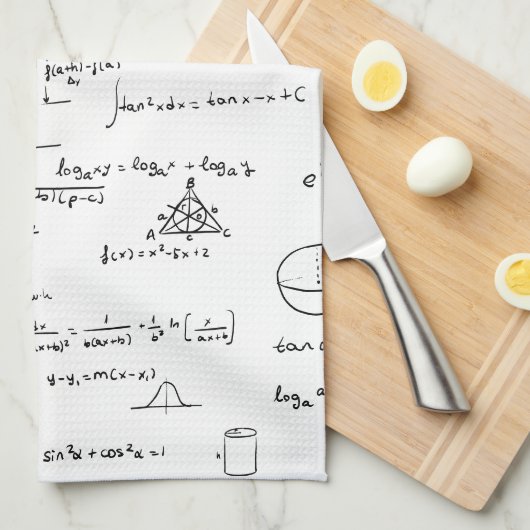 f(a+h)-f(a)
Δy
∫tan²xdx = tanx-x+C
logₐxy = logₐx + logₐy
b)(p-c)
B
r
a o b
A c C
f(x) = x²-5x+2
w·h
dx/(ax+b)² = 1/b(ax+b) + 1/b² ln[x/ax+b]
y-y₁ = m(x-x₁)
tan
logₐa
sin²α + cos²α = 1
h
e